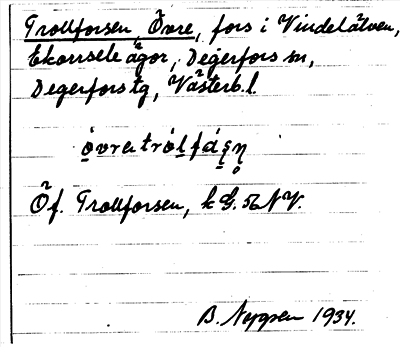 Trollforsen, Övre, fors i Vindelälven,
Ekorrsele ägor, Degerfors sn,
Degerfors tg, Västerb. l.
Öf. Trollforsen, k G. 52 NV.
B. Nopgsen 1934.